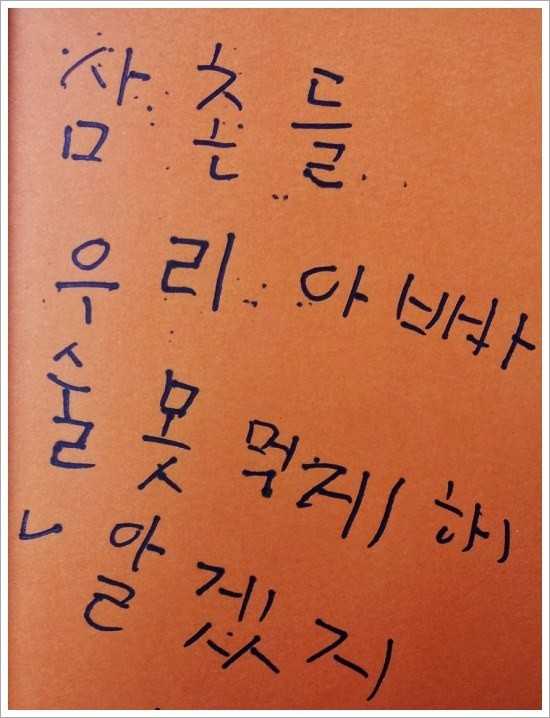 삼촌들
우리 아빠
술 못 먹게 해
알겠지